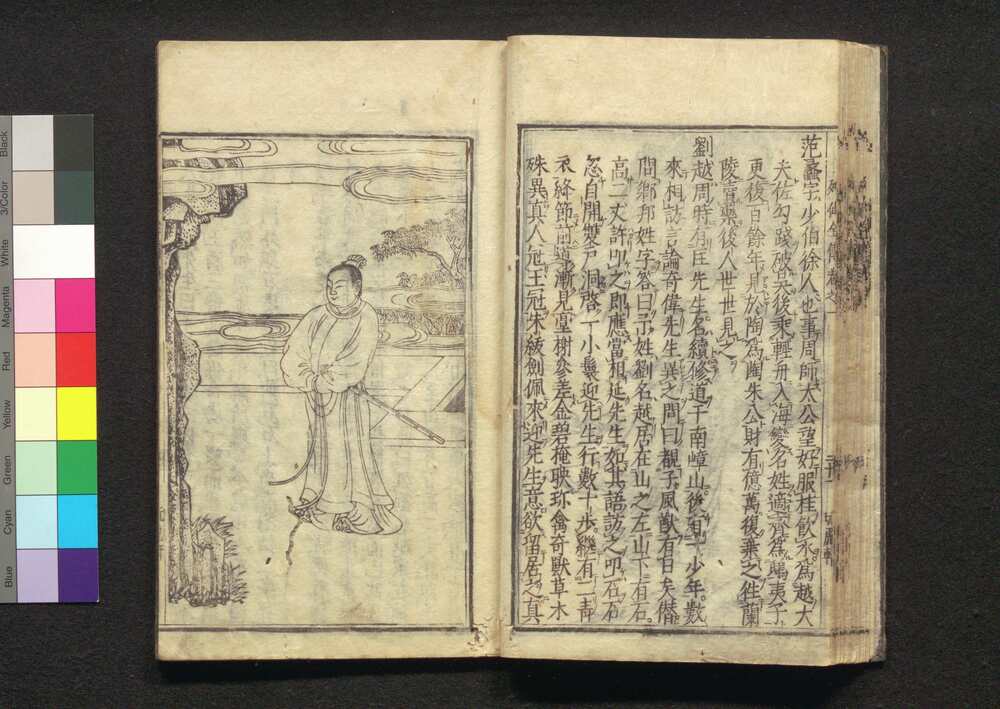 范蠡字少伯徐人也事周師太公望好服桂飲水爲越大
夫佐勾踐破吳後乘輕舟入海變名姓適齊爲鴟夷子
更後百餘年見於陶爲陶朱公財有億萬復棄之往蘭
陵賣藥後人世世見之
劉越周時有匡先生名續修道于南嶂山後有一少年數
來相訪言論奇偉先生異之問曰觀子風猷有日矣僭
問鄉邦姓字答曰予姓劉名越居在山之左山下有石
高二丈許叩之即應當相延先生如其語訪之叩石石
忽自開雙戸洞啓一小鬟迎先生行數十歩繼有二青
衣絳節前導漸見臺榭參差金碧掩映珍禽奇獸草木
殊異真人冠玉冠朱紱劍佩來迎先生意欲留居之真
列仙全傳卷之一
Black
3/Color
White
Magenta
Red
Yellow
Green
Cyan
Blue